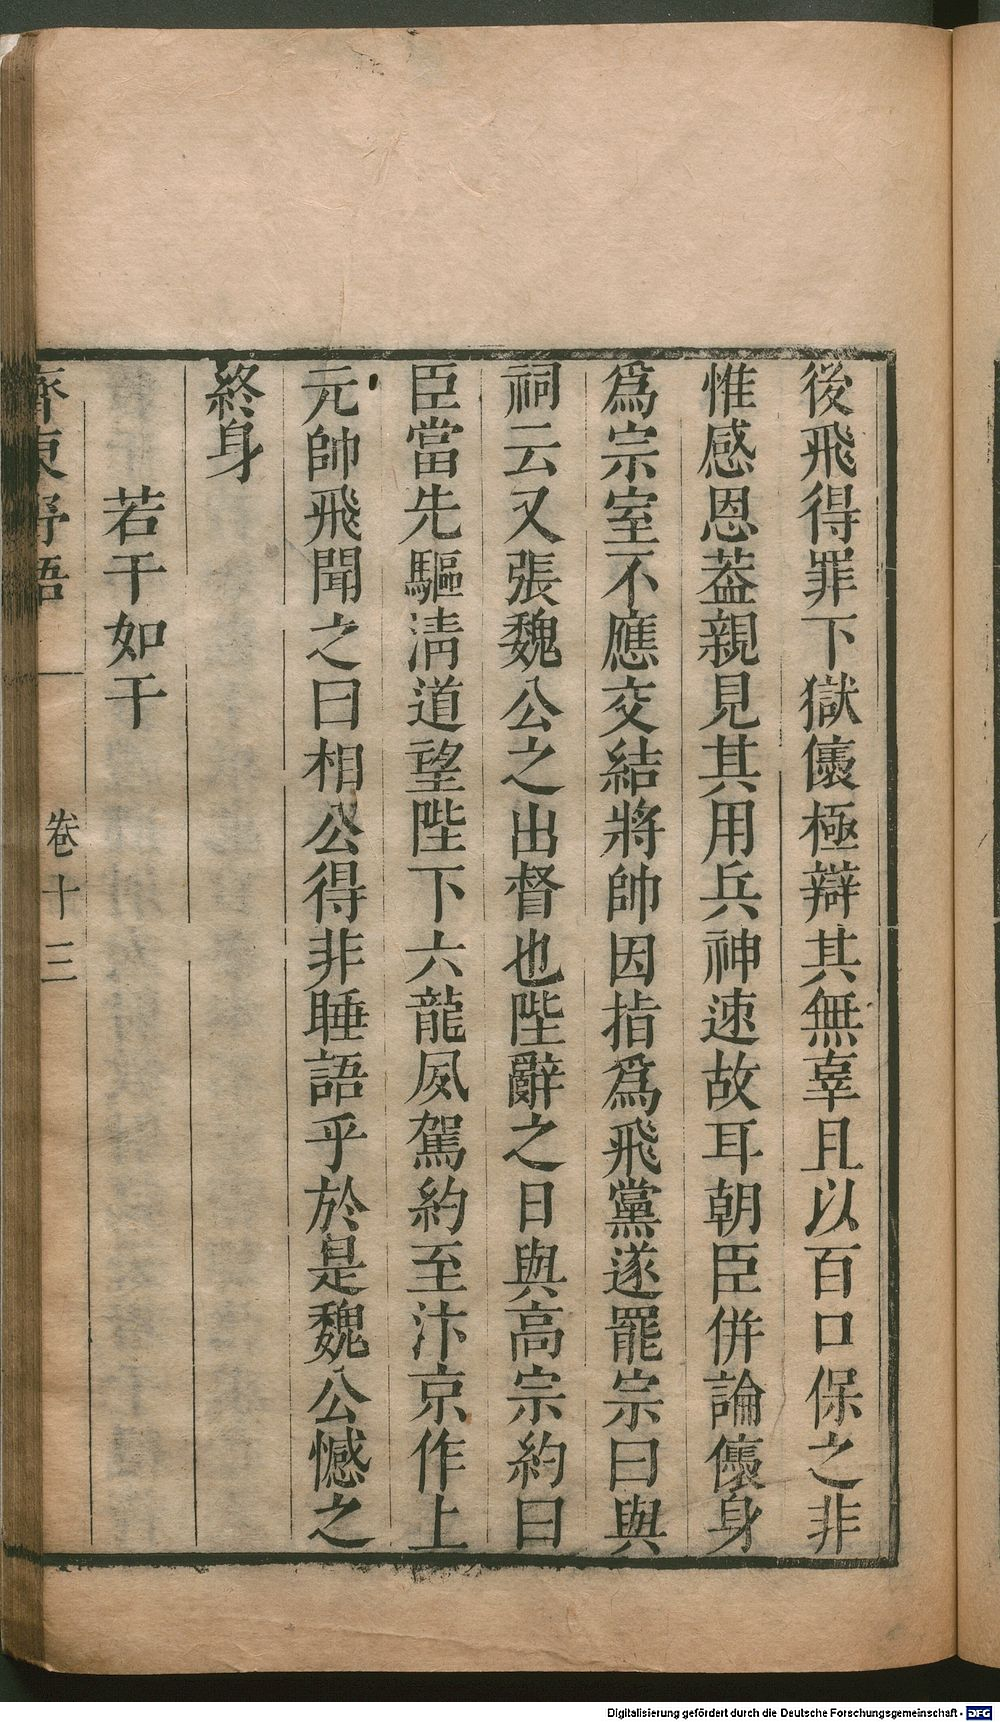 後飛得罪下獄儴極辯其無辜且以百口保之非
惟感恩葢親見其用兵神速故耳朝臣併論儴身
爲宗室不應交結將帥因指爲飛黨遂罷宗曰與
祠云又張魏公之出督也陛辭之日與高宗約曰
臣當先驅淸道望陛下六龍夙駕約至汴京作上
元帥飛聞之曰相公得非睡語乎於是魏公憾之
終身
若干如干
齊東野語
卷十三
Digitalisierung gefördert durch die Deutsche Forschungsgemeinschaft - DFG